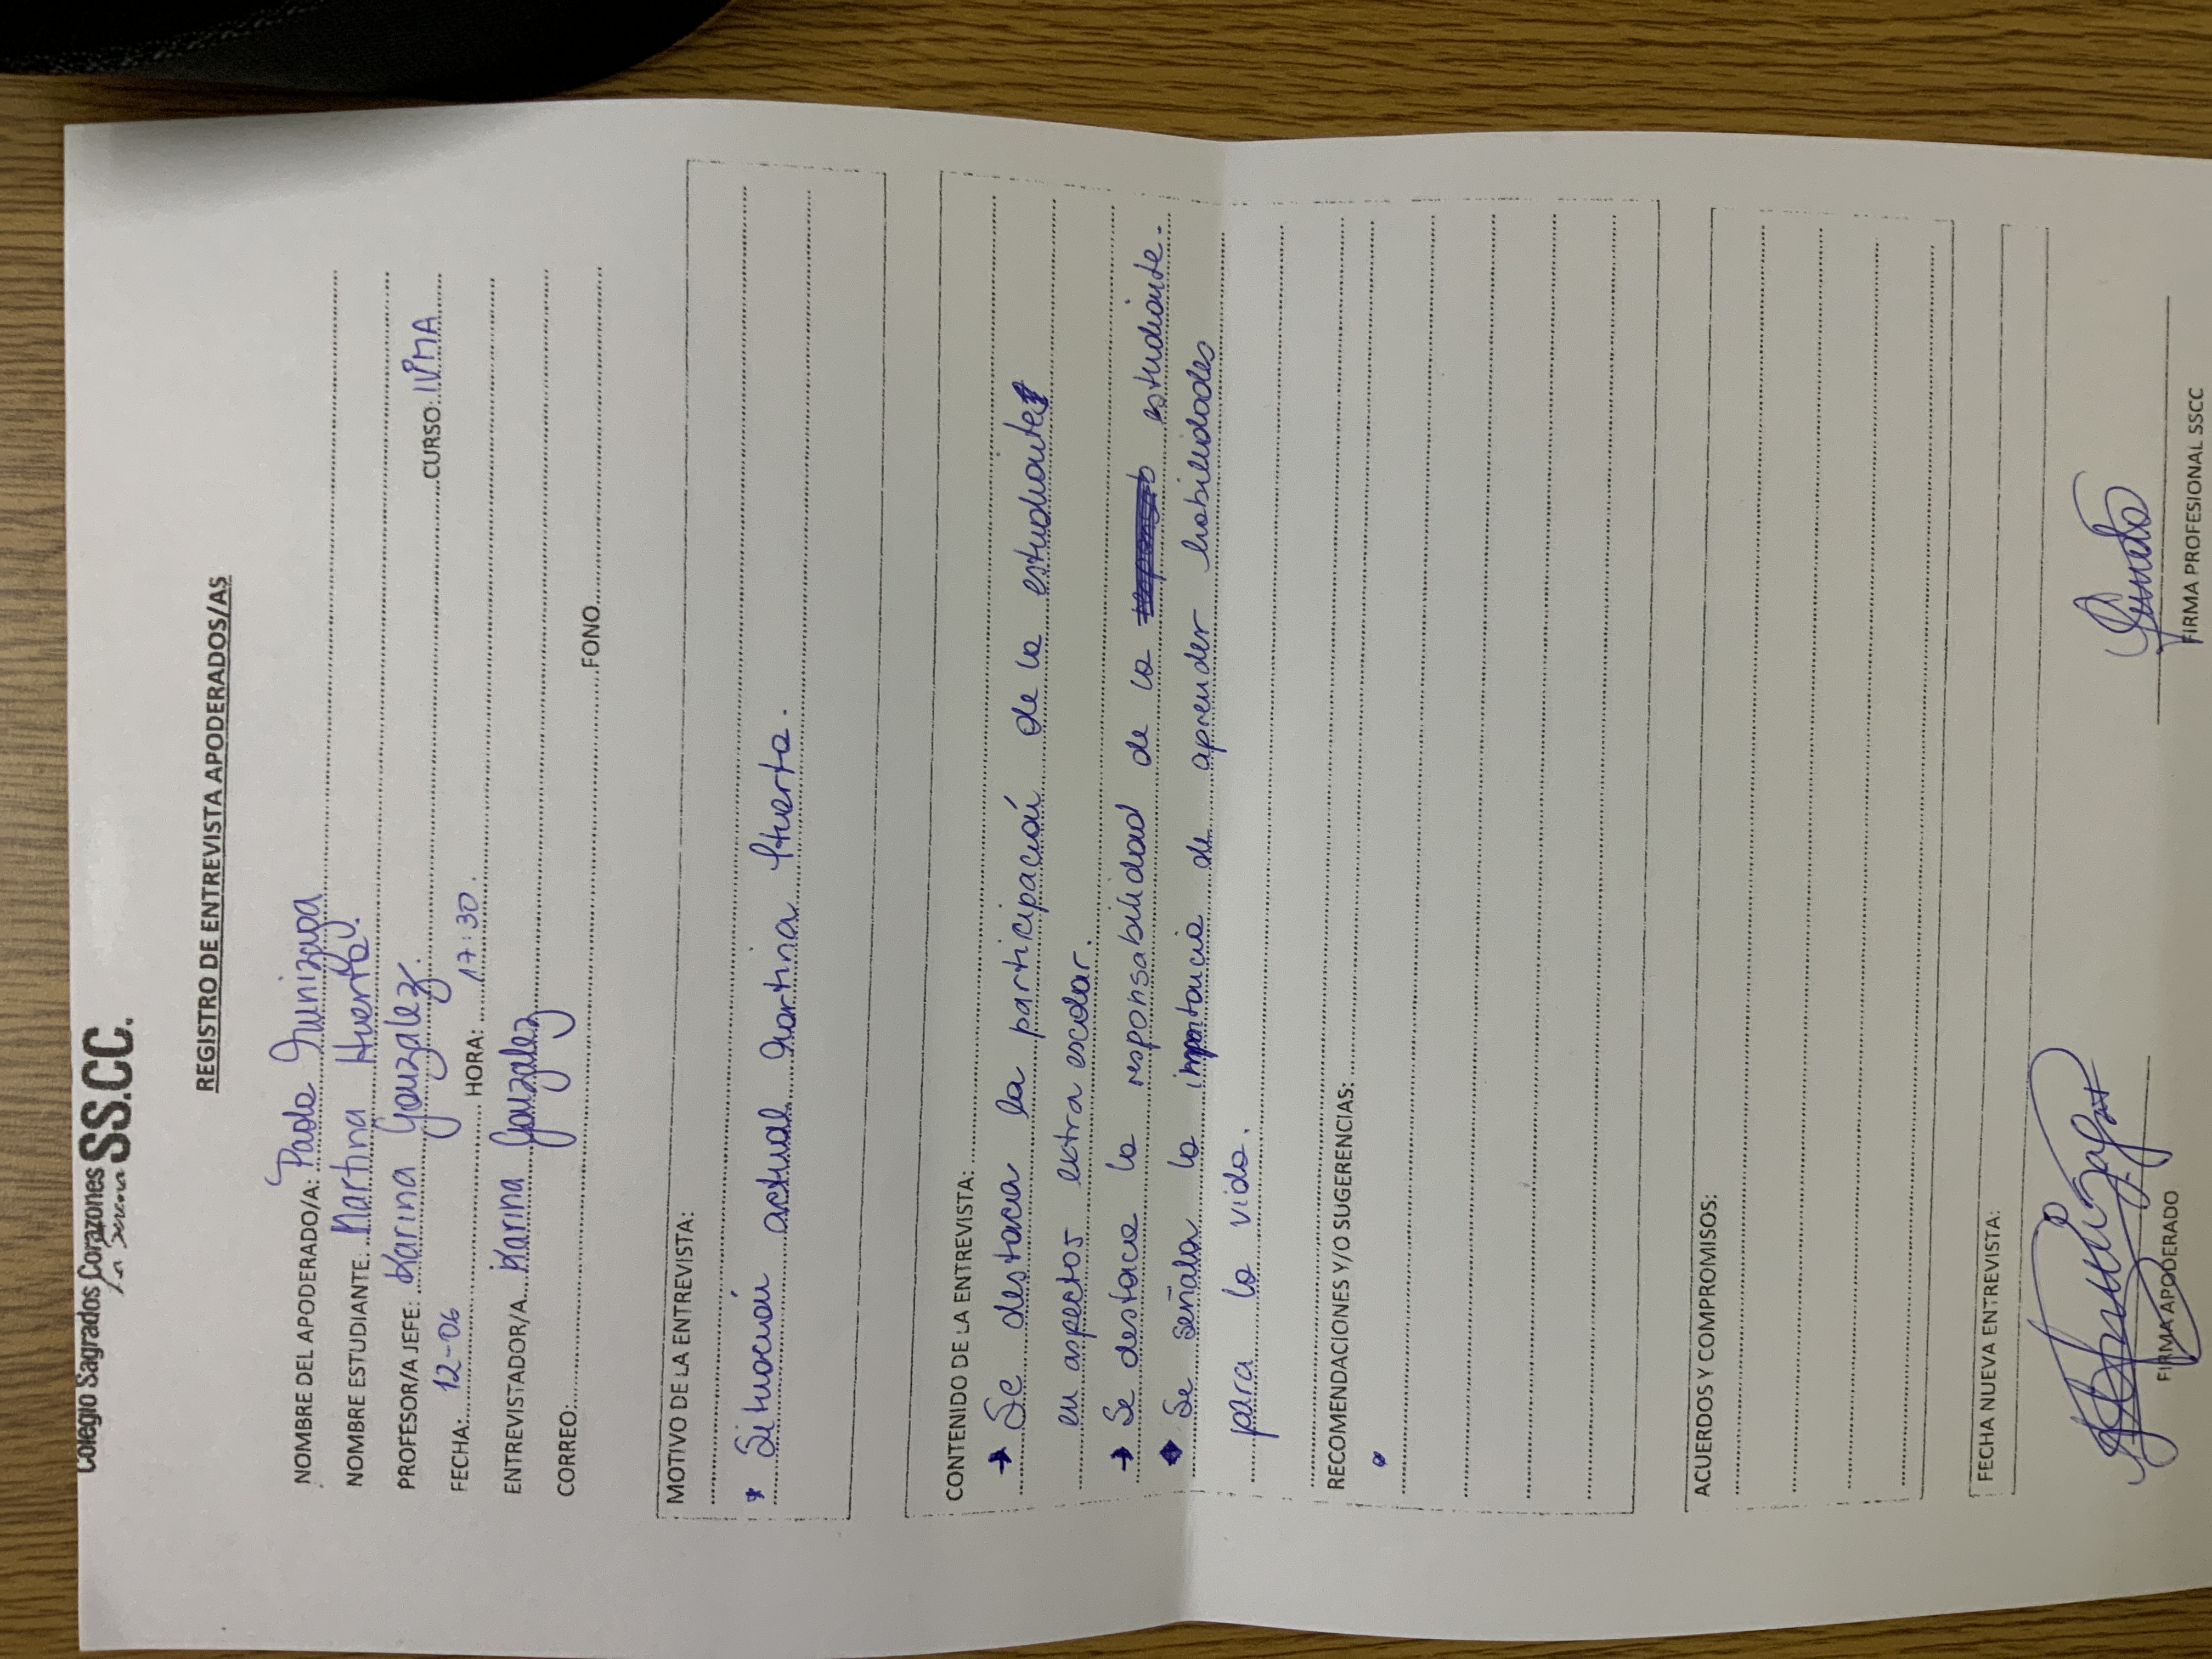 Colegio Sagrados Corazones SS.CC.
La Serena
REGISTRO DE ENTREVISTA APODERADOS/AS
NOMBRE DEL APODERADO/A: Paola Munizaga
NOMBRE ESTUDIANTE: Martina Huerta.
PROFESOR/A JEFE: Karina González. CURSO: IVºMA
FECHA: 12-06 HORA: 17:30.
ENTREVISTADOR/A: Karina González
CORREO: FONO
MOTIVO DE LA ENTREVISTA:
* Situación actual Martina Huerta.
CONTENIDO DE LA ENTREVISTA:
→ Se destaca la participación de la estudiante
en aspectos extra escolar.
→ Se destaca la responsabilidad de la estudiante.
Se señala la importancia de aprender habilidades
para la vida.
RECOMENDACIONES Y/O SUGERENCIAS:
ACUERDOS Y COMPROMISOS:
FECHA NUEVA ENTREVISTA:
FIRMA APODERADO FIRMA PROFESIONAL SSCC